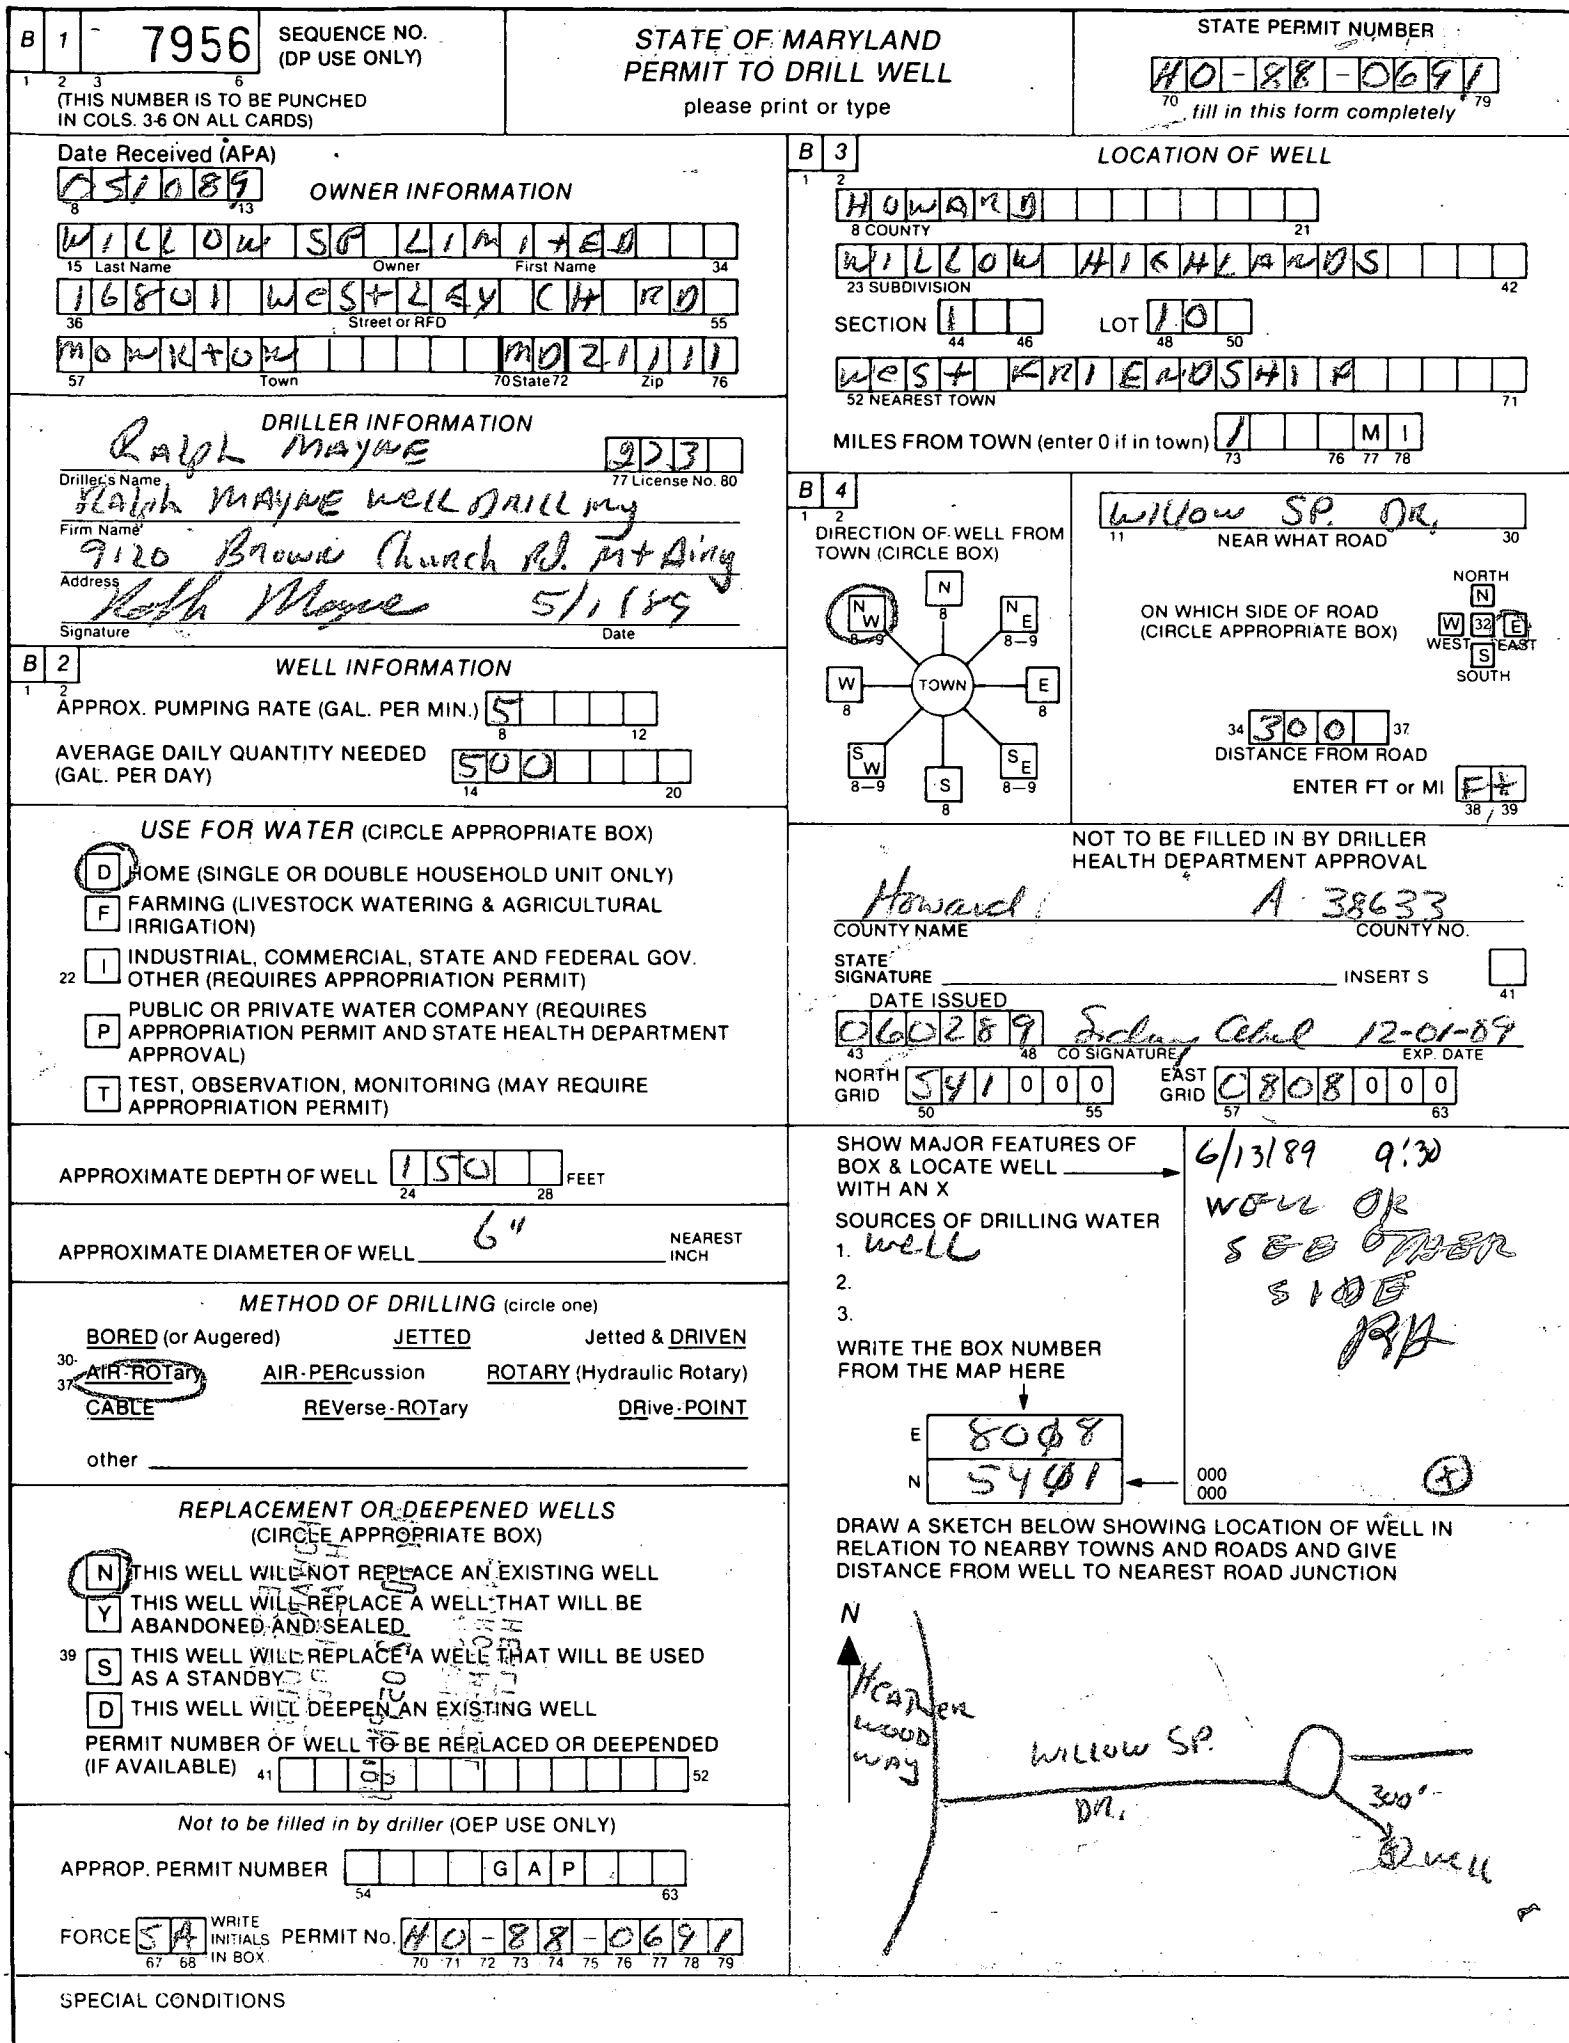 B 1 - 7956 SEQUENCE NO. (DP USE ONLY)
1 2 3 6
(THIS NUMBER IS TO BE PUNCHED
IN COLS. 3-6 ON ALL CARDS)
STATE OF MARYLAND
PERMIT TO DRILL WELL
please print or type
STATE PERMIT NUMBER
HO-88-0691
70 79
fill in this form completely
Date Received (APA)
051089
8 13
OWNER INFORMATION
WILLOW SP LIMITED
15 Last Name Owner First Name 34
16801 WESTLEY CH RD
36 Street or RFD 55
MONKTON MD 21111
57 Town 70 State 72 Zip 76
DRILLER INFORMATION
Ralph MAYNE 273
Driller's Name 77 License No. 80
Ralph MAYNE Well DRILLing
Firm Name
9120 Brown Church Rd. Mt Airy
Address
Ralph Mayne 5/1/89
Signature Date
B 2 WELL INFORMATION
1 2
APPROX. PUMPING RATE (GAL. PER MIN.) 5
8 12
AVERAGE DAILY QUANTITY NEEDED
(GAL. PER DAY) 500
14 20
USE FOR WATER (CIRCLE APPROPRIATE BOX)
D HOME (SINGLE OR DOUBLE HOUSEHOLD UNIT ONLY)
F FARMING (LIVESTOCK WATERING & AGRICULTURAL
IRRIGATION)
22 I INDUSTRIAL, COMMERCIAL, STATE AND FEDERAL GOV.
OTHER (REQUIRES APPROPRIATION PERMIT)
P PUBLIC OR PRIVATE WATER COMPANY (REQUIRES
APPROPRIATION PERMIT AND STATE HEALTH DEPARTMENT
APPROVAL)
T TEST, OBSERVATION, MONITORING (MAY REQUIRE
APPROPRIATION PERMIT)
APPROXIMATE DEPTH OF WELL 150 FEET
24 28
APPROXIMATE DIAMETER OF WELL 6" NEAREST
INCH
METHOD OF DRILLING (circle one)
BORED (or Augered) JETTED Jetted & DRIVEN
30-
37 AIR-ROTary AIR-PERcussion ROTARY (Hydraulic Rotary)
CABLE REVerse-ROTary DRive-POINT
other
REPLACEMENT OR DEEPENED WELLS
(CIRCLE APPROPRIATE BOX)
N THIS WELL WILL NOT REPLACE AN EXISTING WELL
Y THIS WELL WILL REPLACE A WELL THAT WILL BE
ABANDONED AND SEALED
39 S THIS WELL WILL REPLACE A WELL THAT WILL BE USED
AS A STANDBY
D THIS WELL WILL DEEPEN AN EXISTING WELL
PERMIT NUMBER OF WELL TO BE REPLACED OR DEEPENDED
(IF AVAILABLE) 41 52
Not to be filled in by driller (OEP USE ONLY)
APPROP. PERMIT NUMBER GAP
54 63
FORCE SA WRITE INITIALS IN BOX PERMIT No. HO-88-0691
67 68 70 71 72 73 74 75 76 77 78 79
SPECIAL CONDITIONS
B 3 LOCATION OF WELL
1 2
HOWARD
8 COUNTY 21
WILLOW HIGHLANDS
23 SUBDIVISION 42
SECTION 1 LOT 10
44 46 48 50
WEST FRIENDSHIP
52 NEAREST TOWN 71
MILES FROM TOWN (enter 0 if in town) 1 MI
73 76 77 78
B 4
1 2
DIRECTION OF WELL FROM
TOWN (CIRCLE BOX)
N 8
NW 8-9
NE 8-9
W 8
TOWN
E 8
SW 8-9
S 8
SE 8-9
Willow SP. DR.
11 NEAR WHAT ROAD 30
ON WHICH SIDE OF ROAD
(CIRCLE APPROPRIATE BOX)
NORTH
N
W 32 E
WEST EAST
S
SOUTH
34 300 37
DISTANCE FROM ROAD
ENTER FT or MI Ft
38 39
NOT TO BE FILLED IN BY DRILLER
HEALTH DEPARTMENT APPROVAL
Howard A 38633
COUNTY NAME COUNTY NO.
STATE
SIGNATURE INSERT S
41
DATE ISSUED
060289 12-01-89
43 48 CO SIGNATURE EXP. DATE
NORTH GRID 541000 EAST GRID 0808000
50 55 57 63
SHOW MAJOR FEATURES OF
BOX & LOCATE WELL
WITH AN X
SOURCES OF DRILLING WATER
1. Well
2.
3.
WRITE THE BOX NUMBER
FROM THE MAP HERE
E 8008
N 5401
000
000
6/13/89 9:30
WELL OK
SEE OTHER
SIDE
X
DRAW A SKETCH BELOW SHOWING LOCATION OF WELL IN
RELATION TO NEARBY TOWNS AND ROADS AND GIVE
DISTANCE FROM WELL TO NEAREST ROAD JUNCTION
N
HEATHER
WOOD
WAY
WILLOW SP.
DR.
300'
well